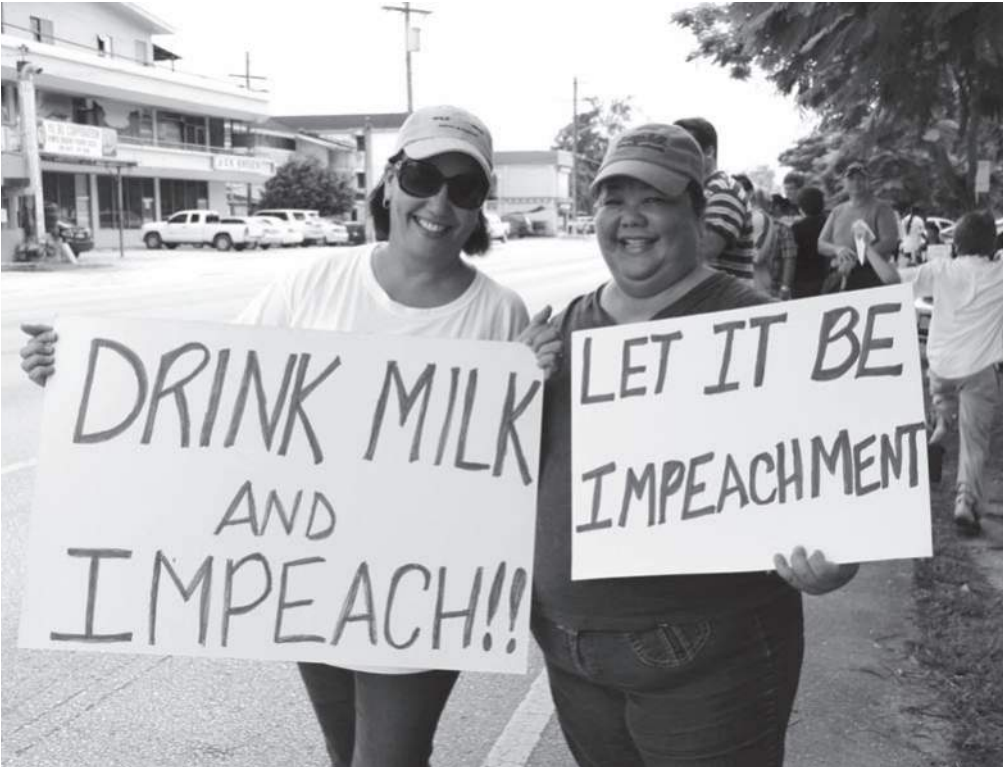 DRINK MILK
AND
IMPEACH!!
LET IT BE
IMPEACHMENT